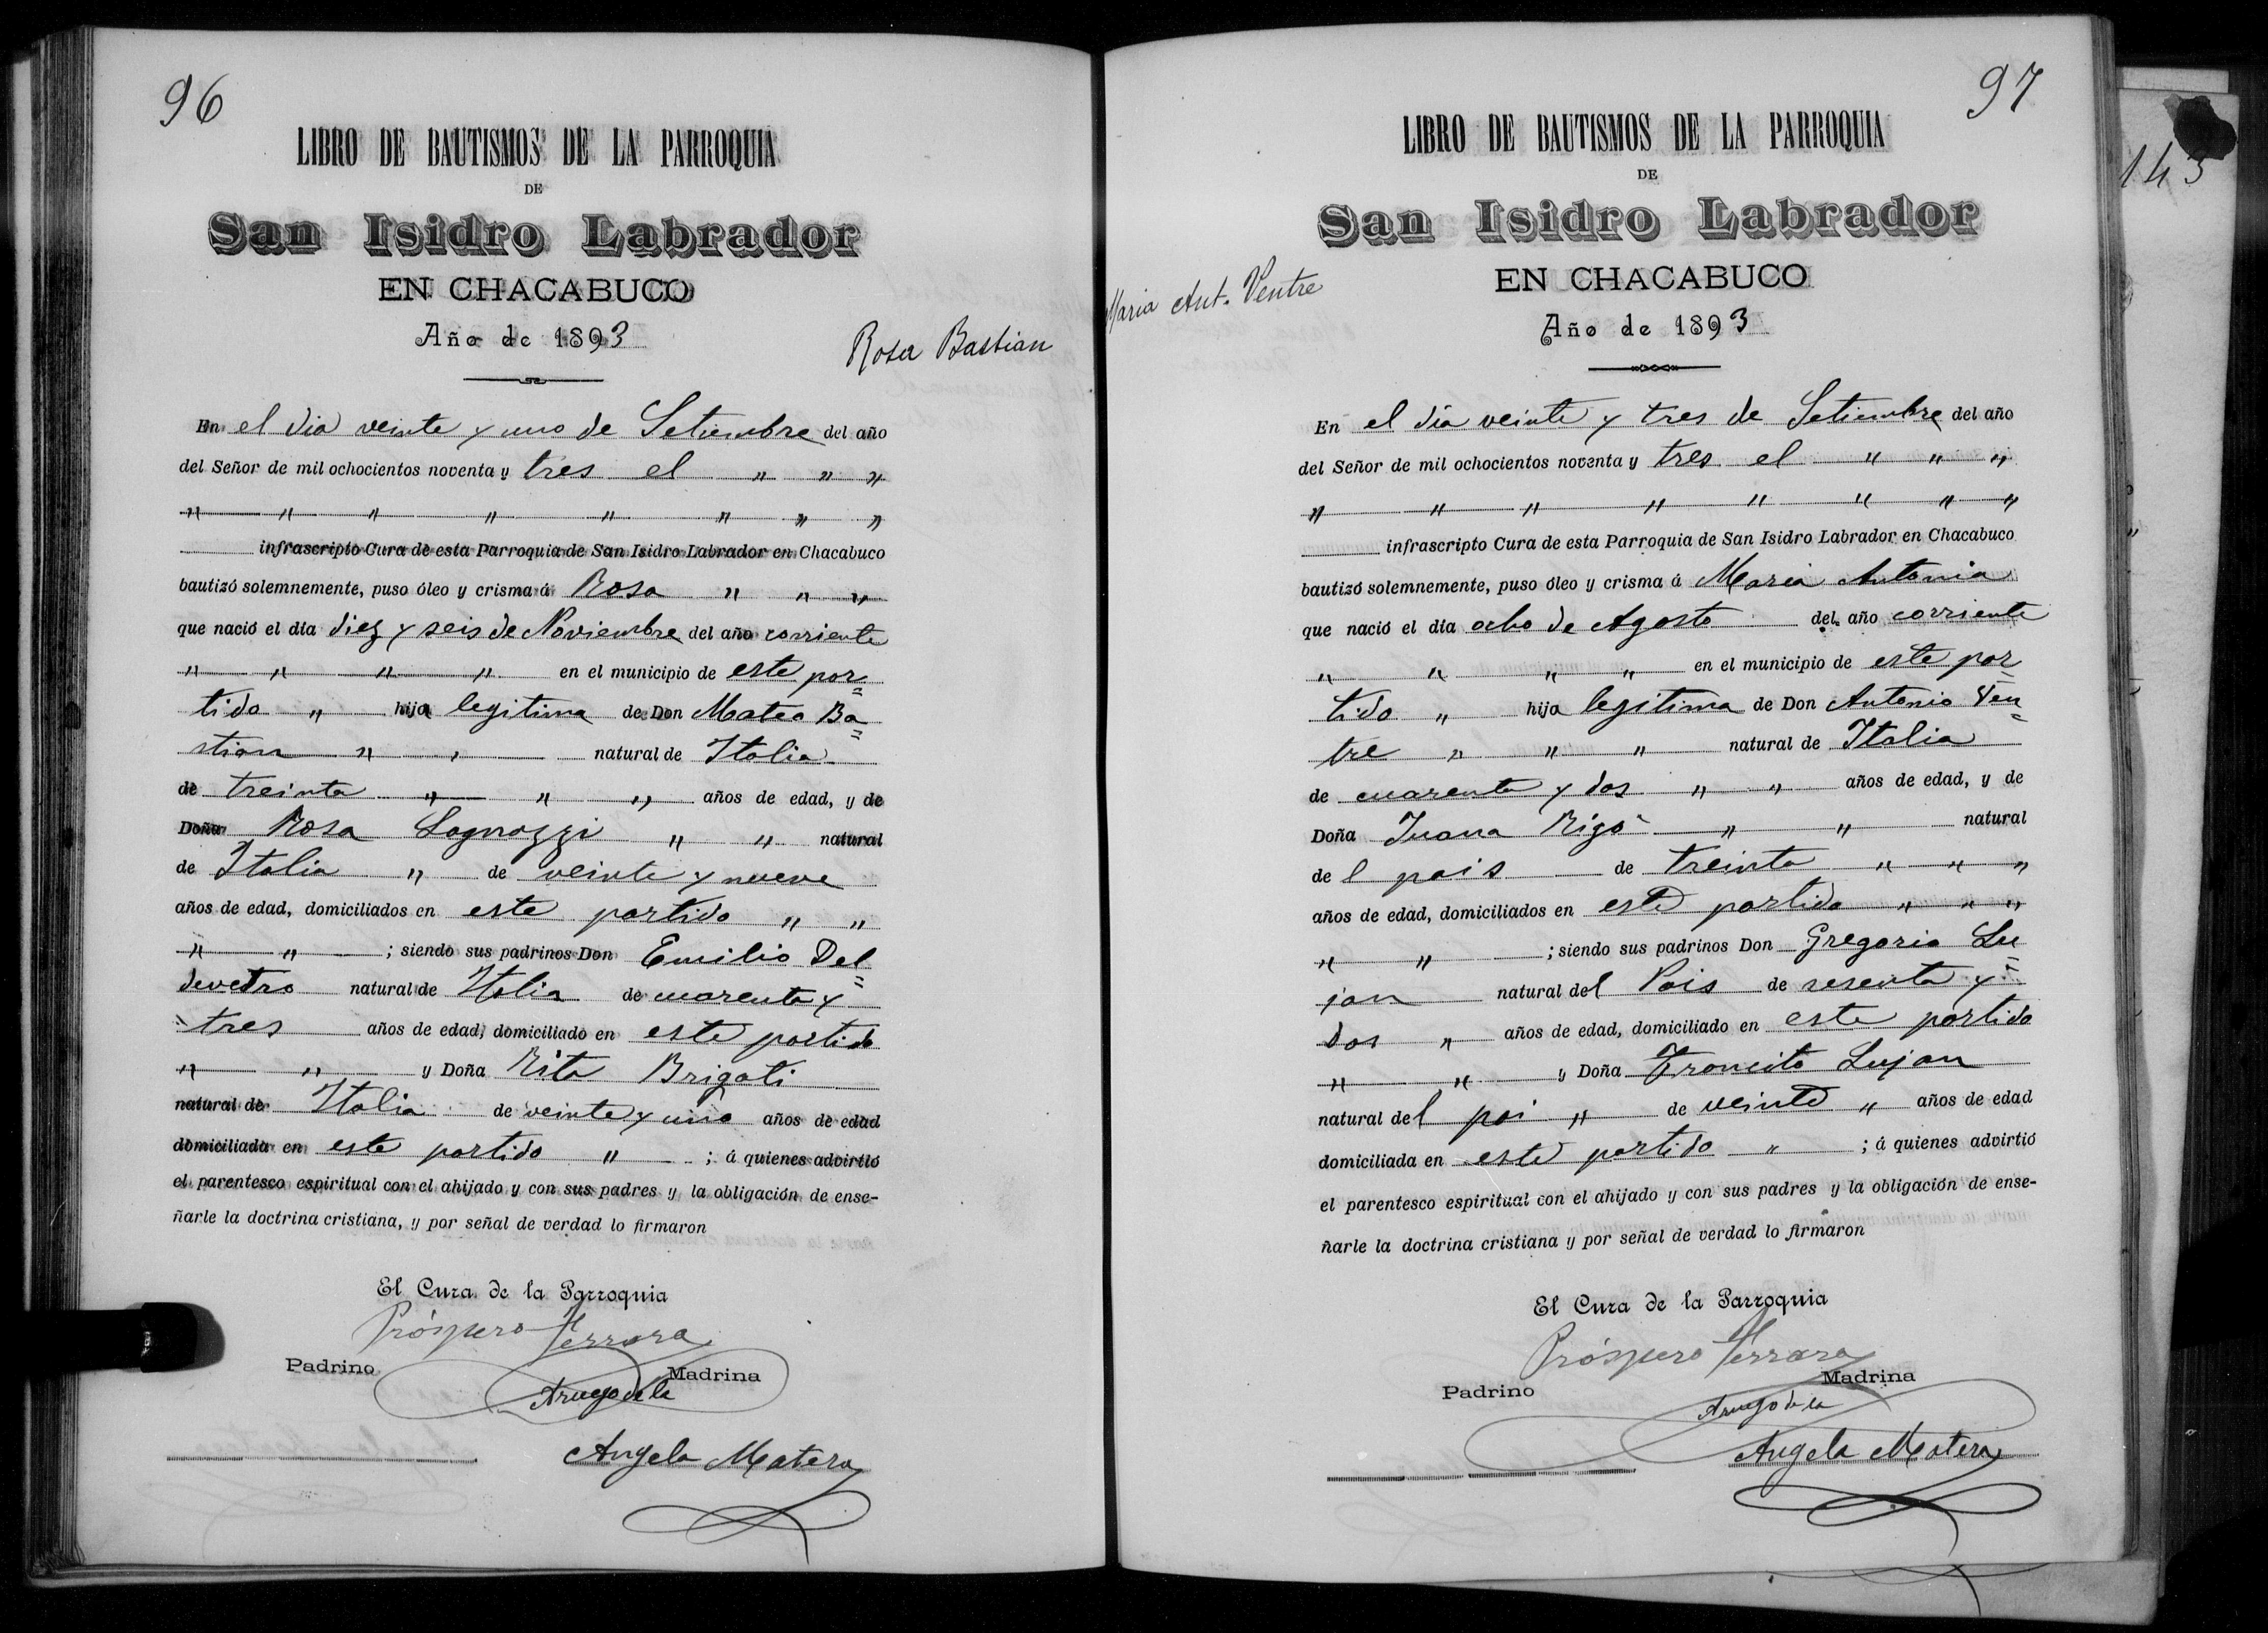 96
LIBRO DE BAUTISMOS DE LA PARROQUIA
DE
San Isidro Labrador
EN CHACABUCO
Año de 1893
Rosa Bastian
En el dia veinte y uno de Setiembre del año
del Señor de mil ochocientos noventa y tres el " " "
" " " " " " " "
infrascripto Cura de esta Parroquia de San Isidro Labrador en Chacabuco
bautizó solemnemente, puso óleo y crisma á Rosa " " "
que nació el dia diez y seis de Noviembre del año corriente
" " " " en el municipio de este par=
tido " hija legitima de Don Mateo Ba=
stian " " natural de Italia
de treinta " " " años de edad, y de
Doña Rosa Lagnozzi " " natural
de Italia " de veinte y nueve
años de edad, domiciliados en este partido " "
" " ; siendo sus padrinos Don Emilio Del=
devetro natural de Italia de cuarenta y
tres años de edad, domiciliado en este partido
" " y Doña Rita Brigati
natural de Italia de veinte y uno años de edad
domiciliada en este partido " ; á quienes advirtió
el parentesco espiritual con el ahijado y con sus padres y la obligación de ense-
ñarle la doctrina cristiana, y por señal de verdad lo firmaron
El Cura de la Parroquia
Próspero Ferrara
Padrino Madrina
Aruego de la
Angela Matera
97
LIBRO DE BAUTISMOS DE LA PARROQUIA
DE
San Isidro Labrador
EN CHACABUCO
Maria Ant. Ventre
Año de 1893
En el dia veinte y tres de Setiembre del año
del Señor de mil ochocientos noventa y tres el " " "
" " " " " " " "
infrascripto Cura de esta Parroquia de San Isidro Labrador en Chacabuco
bautizó solemnemente, puso óleo y crisma á Maria Antonia
que nació el dia ocho de Agosto del año corriente
" " " " en el municipio de este par
tido " hija legitima de Don Antonio Ven=
tre " " " natural de Italia
de cuarenta y dos " " años de edad, y de
Doña Juana Rigo " " natural
del pais de treinta " " "
años de edad, domiciliados en este partido " " "
" " ; siendo sus padrinos Don Gregorio Lu=
jan natural del Pais de sesenta y
dos " años de edad, domiciliado en este partido
" " y Doña Francisca Lujan
natural del pai " de veinte " años de edad
domiciliada en este partido " ; á quienes advirtió
el parentesco espiritual con el ahijado y con sus padres y la obligación de ense-
ñarle la doctrina cristiana y por señal de verdad lo firmaron
El Cura de la Parroquia
Próspero Ferrara
Padrino Madrina
Aruego de la
Angela Matera
143